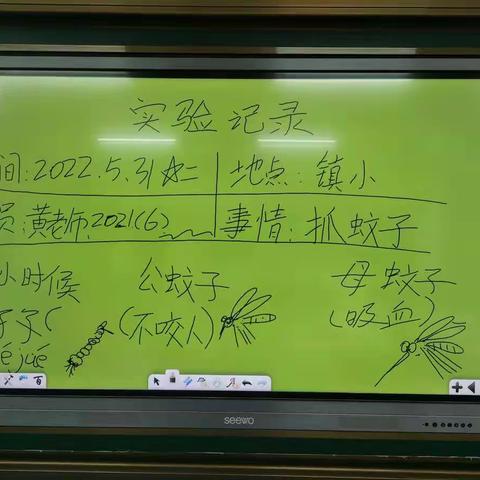 实验记录
间:2022.5.31 星二 地点:镇小
员:黄老师.2021(6) 事情:抓蚊子
小时候 公蚊子 母蚊子
孑孓( (不咬人) (吸血)
é jué
seewo